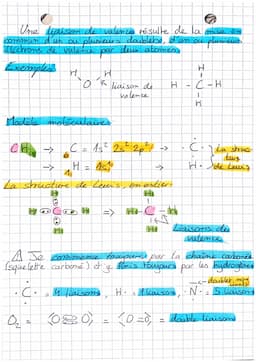 Une liaison de valence résulte de la mise en
commun d'un ou plusieurs doublets, d'un ou plusieurs
électrons de valence par deux atomes.
Exemples
H H H
O liaison de H - C - H
valence H
Modèle moléculaire:
CH4 → C = 1s² 2s² 2p² → · C · La struc
→ H = 1s¹ → H · ture
de Lewis
La structure de Lewis, en entier:
H H
H C H => H - C - H
H H
Liaisons de
valence
⚠ Je commence toujours par la chaîne carbonée
(squelette carboné) et je finis toujours par les hydrogènes
doublet
· C · = 4 liaisons, H · = 1 liaison, · N · = 3 liaisons
O2 = O O => O = O = double liaison